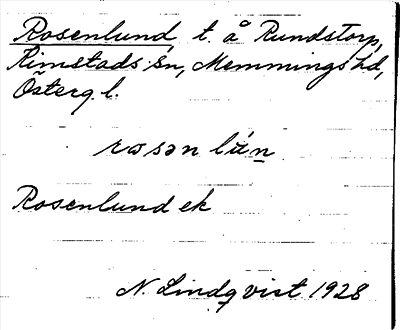 Rosenlund t. å Rundstorp,
Rimstads sn, Memmings hd,
Österg. l.
rosən lún
Rosenlund ek
N. Lindqvist 1928